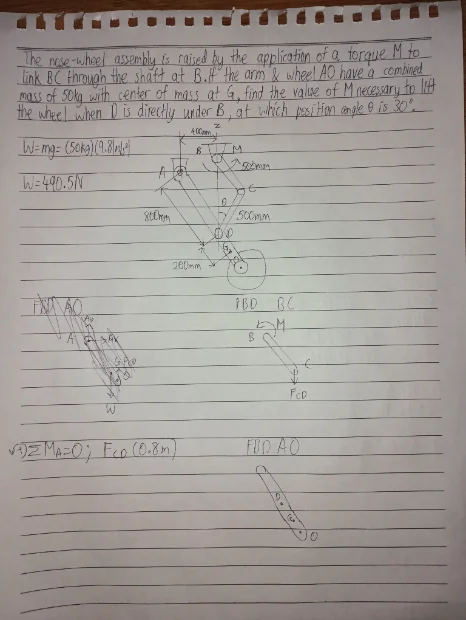 The nose-wheel assembly is raised by the application of a torque M to
link BC through the shaft at B. If the arm & wheel AO have a combined
mass of 50kg with center of mass at G, find the value of M necessary to lift
the wheel when D is directly under B, at which position angle θ is 30°.
W=mg= (50kg)(9.81m/s²)
400mm
B M
A
500mm
W=490.5N
C
θ
800mm
500mm
D
G
200mm
O
FBD AO
FBD BC
M
B
A
C
FCD
W
ΣMA=0; FCD (0.8m)
FBD AO
D
G
O